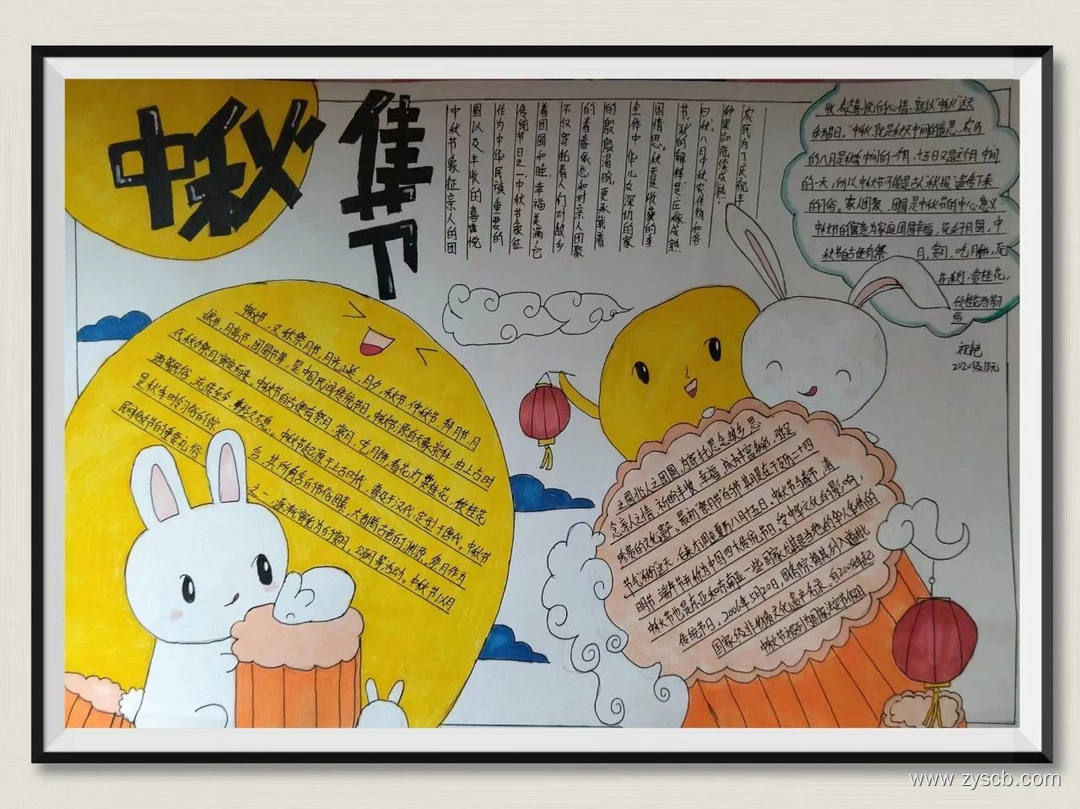 中秋佳节
农民为了庆祝丰
种果品陆续成熟,
曰秋,八月中秋,农作物和各
节,"秋"的解释是:庄家成熟
国情思。秋天是收获的季
全体中华儿女深切的家
的殷殷渴盼,更承载着
的眷眷依恋和对亲人团聚
不仅寄托着人们对故乡
着团圆和睦,幸福美满,它
传统节日之一中秋节象征
作为中华民族重要的
圆以及丰收的喜喜悦
中秋节象征亲人的团
收,表达喜悦的心情,就以"中秋"这天
作为节日。"中秋"就是秋天中间的意思,农历
的八月是秋季中间的一个月,十五日又是这个月中间
的一天,所以中秋节可能是古人"秋报"遗传下来
的习俗。家人团聚、团圆是中秋节的中心意义
中秋节的寓意为家庭团圆幸福,花好月圆,中
秋节自古便有祭 月、赏月、吃月饼、玩
花灯、赏桂花、
饮桂花酒等
俗
2020级1班
中秋节,又称祭月节、月光诞、月夕、秋节、仲秋节、拜月节、月
娘节、月亮节、团圆节等,是中国民间传统节日。中秋节源自天象崇拜,由上古时
代秋夕祭月演变而来。中秋节自古便有祭月、赏月、吃月饼、看花灯、赏桂花、饮桂花
酒等民俗,流传至今,经久不息。中秋节起源于上古时代,普及于汉代,定型于唐代。中秋节
是秋季时令习俗的综 合,其所包含的节俗因素,大都有古老的渊源。祭月作为
民间过节的重要礼俗 之一,逐渐演化为的赏月、颂月等活动。中秋节以月
之圆兆人之团圆,为寄托思念故乡,思
念亲人之情,祈盼丰收、幸福,成为丰富多彩、弥足
珍贵的文化遗产。最初"祭月节"的节期是在干支历二十四
节气"秋分"这天,后来才调至夏历八月十五日。中秋节与春节、清
明节、端午节并称为中国四大传统节日。受中华文化的影响,
中秋节也是东亚和东南亚一些国家尤其是当地的华人华侨的
传统节日。2006年5月20日,国务院将其列入首批
国家级非物质文化遗产名录。自2008年起
中秋节被列为国家法定节假日
www.zyscb.com